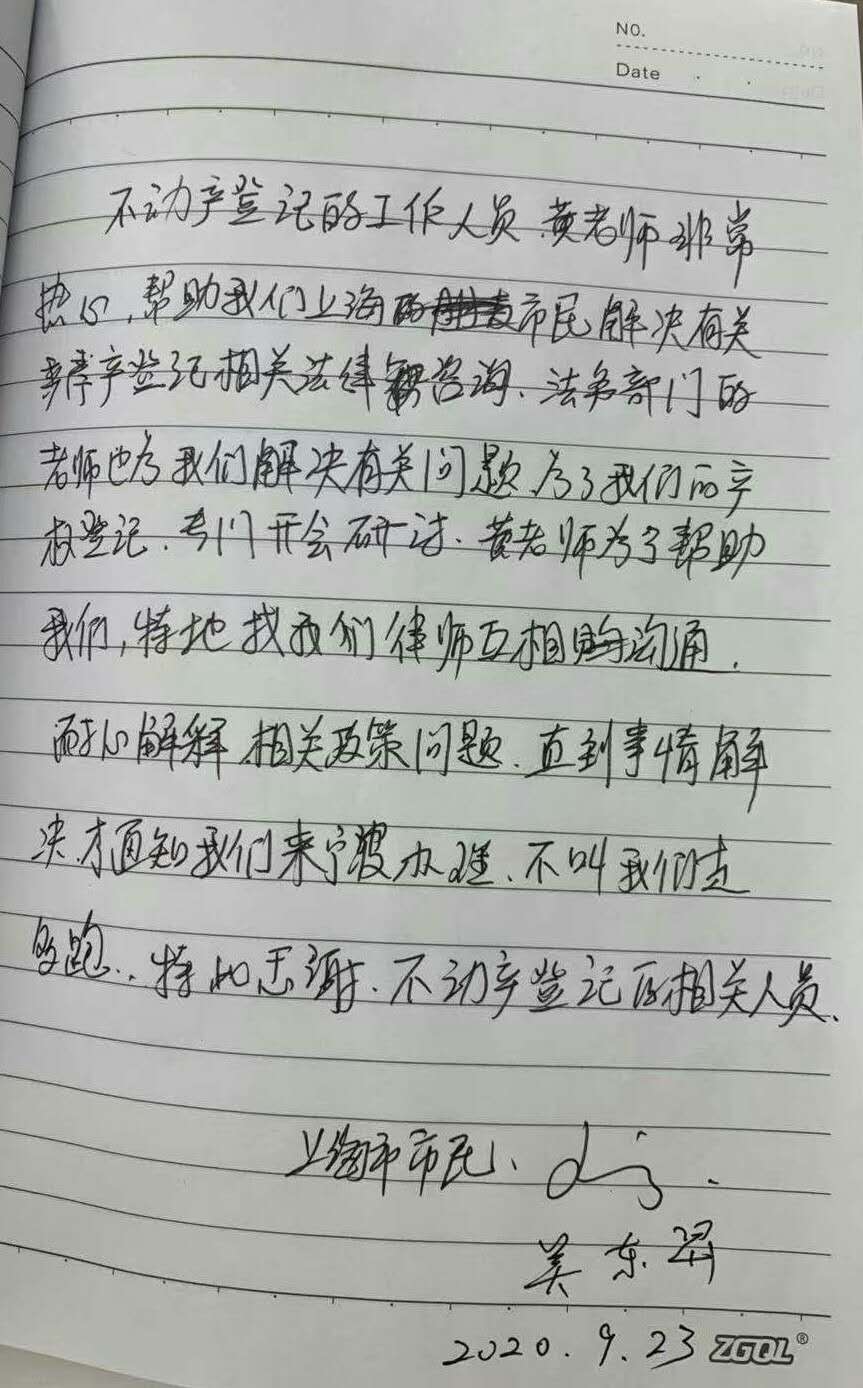 NO.
Date
不动产登记的工作人员黄老师非常
热心,帮助我们上海市民解决有关
产登记相关法律咨询、法务部门的
老师也为我们解决有关问题,为了我们的产
权登记、专门开会研讨、黄老师为了帮助
我们,特地找我们律师互相沟通、
耐心解释相关政策问题、直到事情解
决才通知我们来宁波办理、不叫我们走
多跑、特此感谢、不动产登记的相关人员、
上海市市民、
东
2020.9.23 ZGQL®